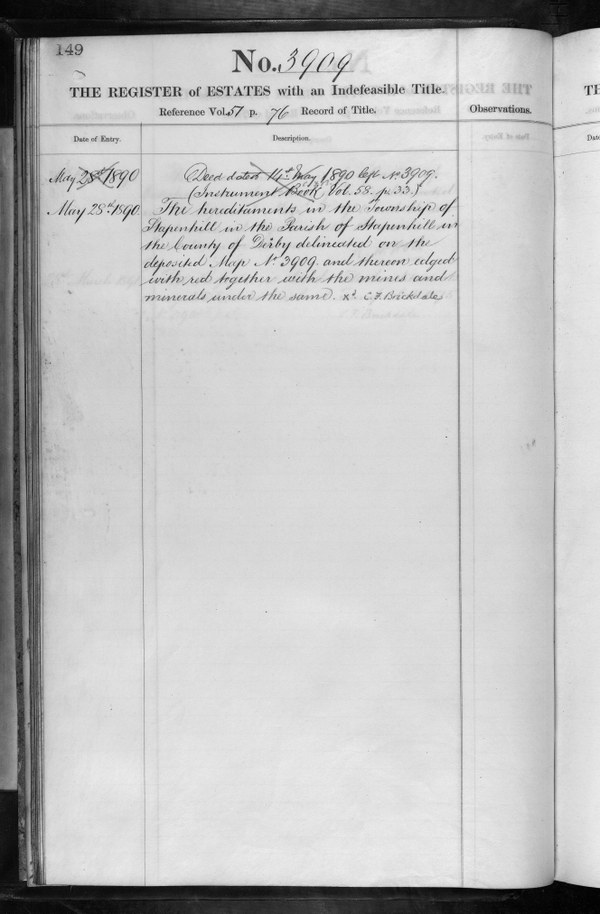 149
No. 3909
THE REGISTER of ESTATES with an Indefeasible Title.
Reference Vol. 51 p. 76 Record of Title.
Observations.
Date of Entry.
Description.
May 28th 1890
Deed dated 14th May 1890 left No 3909.
(Instrument Book Vol. 58. p. 33.)
May 28th 1890.
The hereditaments in the Township of
Stapenhill in the Parish of Stapenhill in
the County of Derby delineated on the
deposited Map No 3909 and thereon edged
with red together with the mines and
minerals under the same. xd C. F. Brickdale
TH
Date